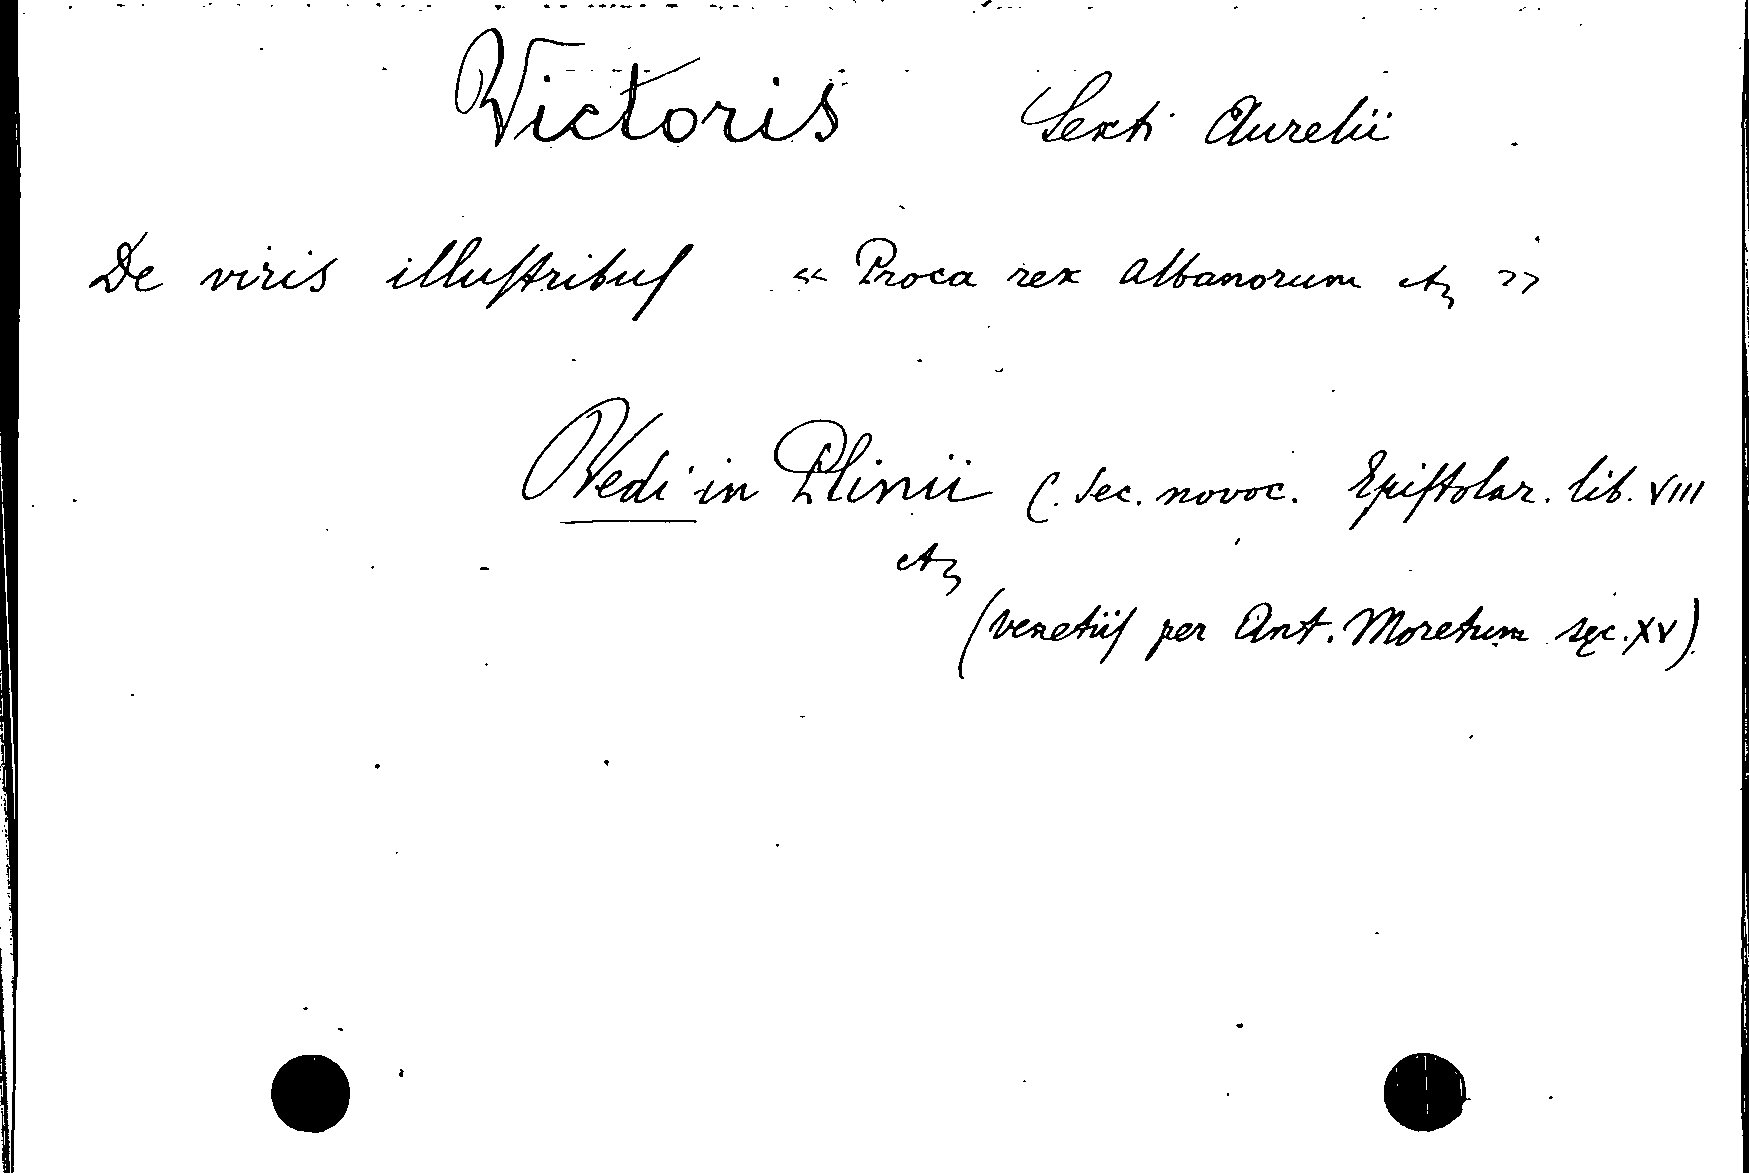 Victoris Sexti Aurelii
De viris illuſtribuſ « Proca rex albanorum etc »
Vedi in Plinii C. Sec. novoc. Epiſtolar. lib. VIII
etc
(venetiiſ per Ant. Moretum sęc. XV)